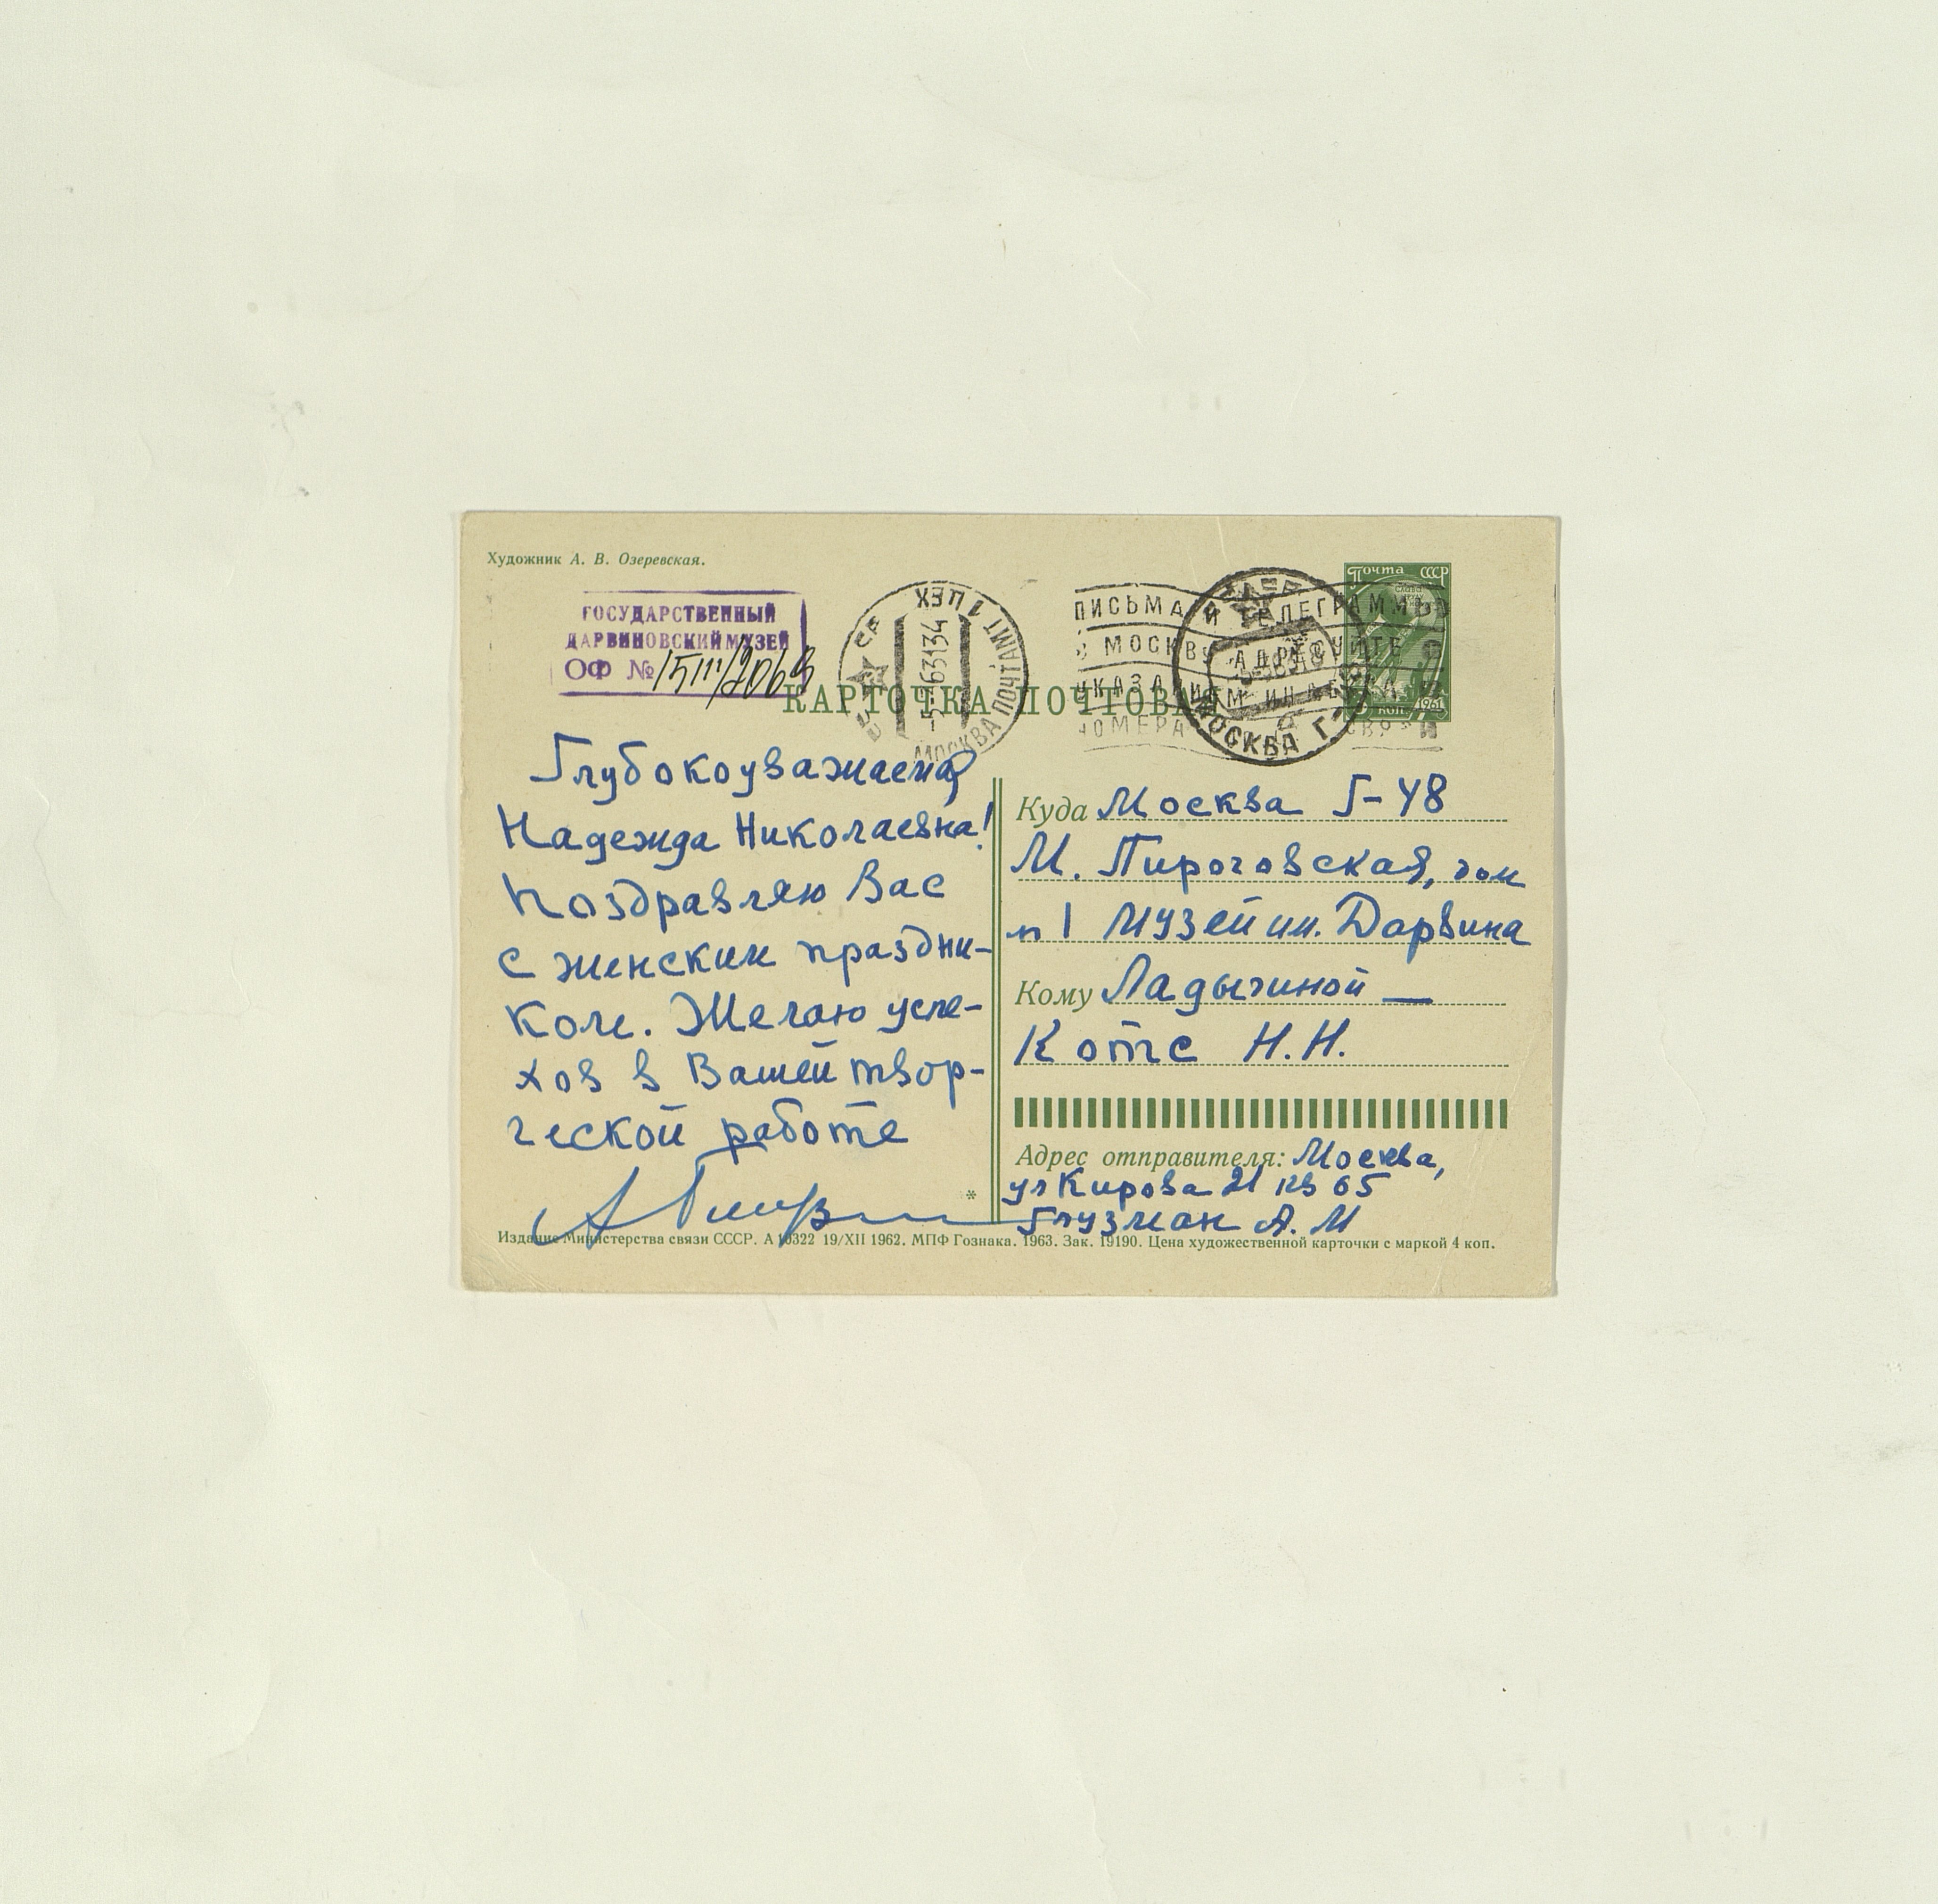 Художник А. В. Озеревская.
ГОСУДАРСТВЕННЫЙ
ДАРВИНОВСКИЙ МУЗЕЙ
ОФ №
МОСКВА ПОЧТАМТ 1 ЦЕХ
-5-363134
ПИСЬМА И ТЕЛЕГРАММЫ
В МОСКВУ АДРЕСУЙТЕ
УКАЗАНИЕМ ИНДЕКСА
НОМЕРА СВЯЗИ
МОСКВА Г-48
Почта СССР
1961
КАРТОЧКА ПОЧТОВАЯ
Глубокоуважаемая
Надежда Николаевна!
Поздравляю Вас
с женским праздни-
ком. Желаю успе-
хов в Вашей твор-
ческой работе
Куда Москва Г-48
М. Пироговская, дом
п 1 Музей им. Дарвина
Кому Ладыгиной —
Котс Н.Н.
Адрес отправителя: Москва,
ул Кирова 21 кв 65
Глузман А. М
*
Издание Министерства связи СССР. А 10322 19/XII 1962. МПФ Гознака. 1963. Зак. 19190. Цена художественной карточки с маркой 4 коп.